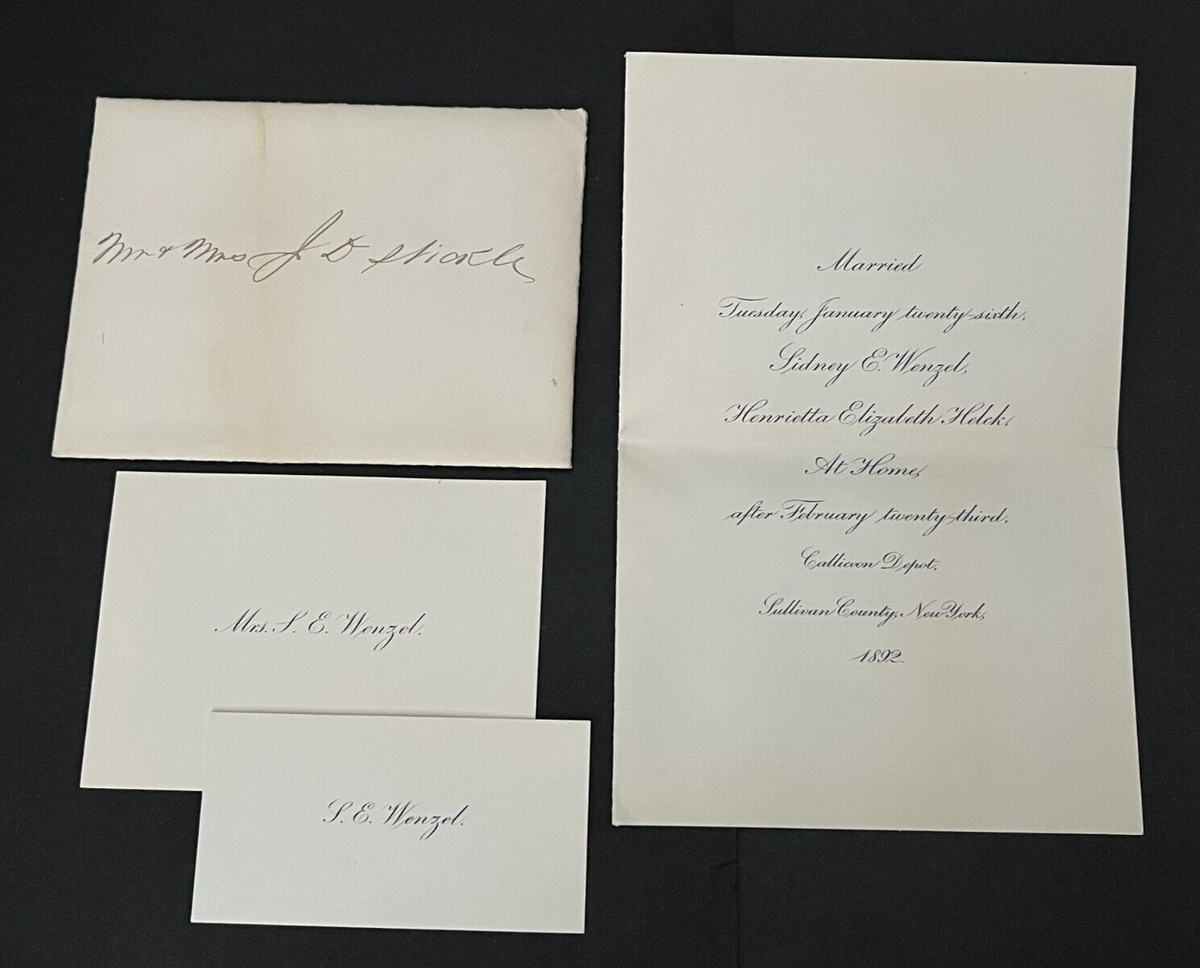 Mr & Mrs J D Stickle
Mrs. S. E. Wenzel.
S. E. Wenzel.
Married
Tuesday, January twenty-sixth,
Sidney E. Wenzel,
Henrietta Elizabeth Helck.
At Home,
after February twenty-third,
Callicoon Depot,
Sullivan County, New York,
1892.